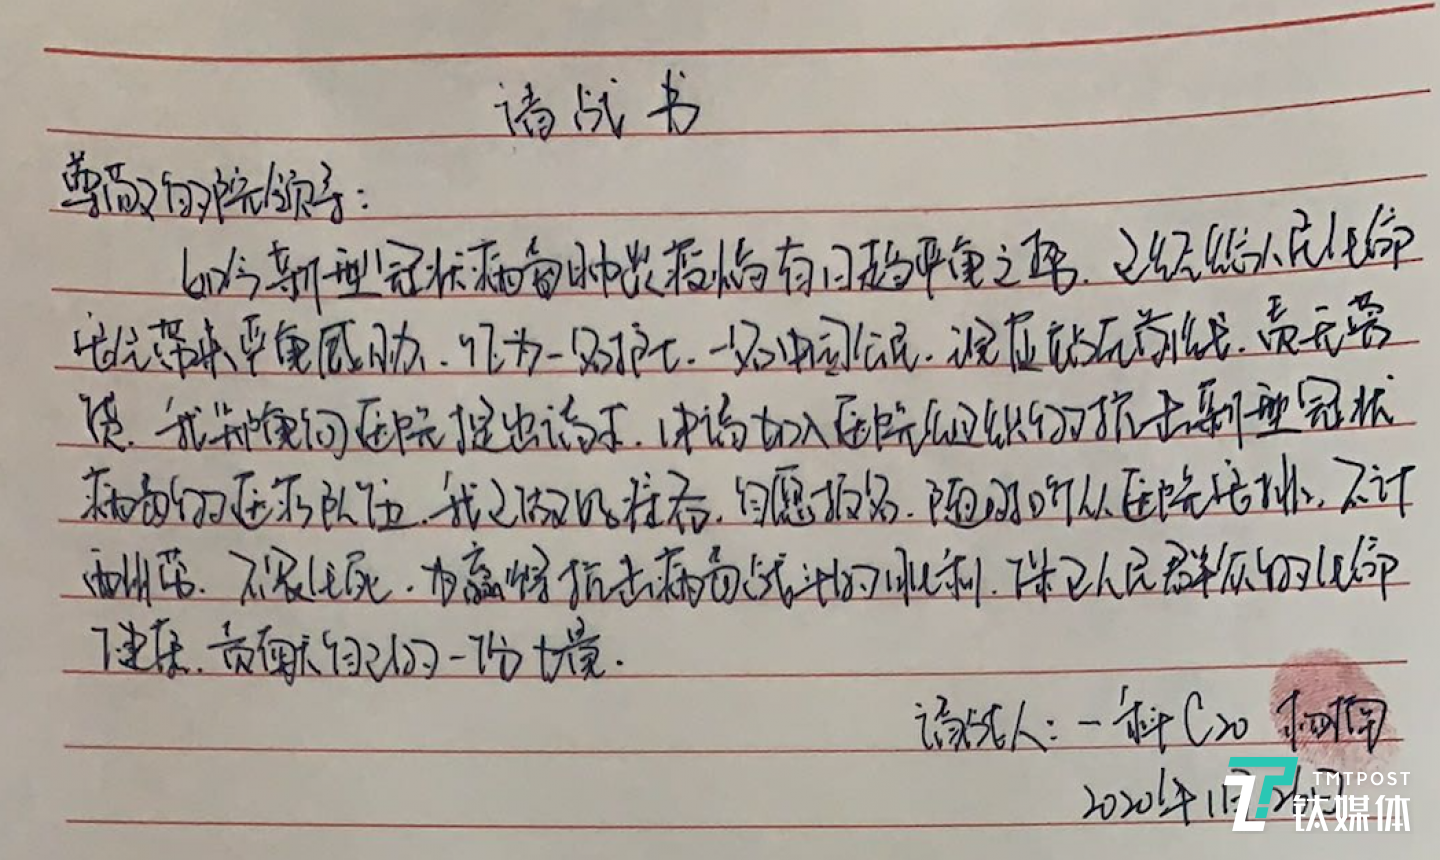 请战书
尊敬的院领导：
如今新型冠状病毒肺炎疫情有日趋严重之势，已经给人民生命
安全带来严重威胁，作为一名护士，一名中国公民，这应站在前线，责无旁
贷，我郑重向医院提出请求，申请加入医院组织的抗击新型冠状
病毒的医疗队伍，我已做好准备，自愿报名，随时听从医院安排，不计
报酬，不畏生死，为赢得抗击病毒战斗的胜利，保卫人民群众的生命
健康，贡献自己的一份力量。
请战人：一科C20
2020年1月26日
TMTPOST
钛媒体